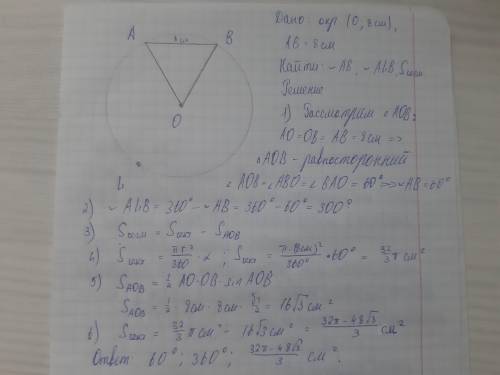 Дано: окр (O, 8см),
AB = 8см
Найти: ◡AB, ◡ALB, Sсегм
Решение
1) Рассмотрим △AOB:
AO = OB = AB = 8см =>
△AOB - равносторонний
∠AOB = ∠ABO = ∠BAO = 60° => ◡AB = 60°
A
8см
B
O
L
2) ◡ALB = 360° - ◡AB = 360° - 60° = 300°
3) Sсегм = Sсект - SAOB
4) Sсект = πr²/360 · α ; Sсект = π·(8см)²/360° · 60° = 32/3 π см²
5) SAOB = 1/2 AO·OB·sin AOB
SAOB = 1/2 · 8см · 8см · √3/2 = 16√3 см²
6) Sсект = 32/3 π см² - 16√3 см² = 32π - 48√3/3 см²
Ответ: 60°; 360°; 32π - 48√3/3 см².